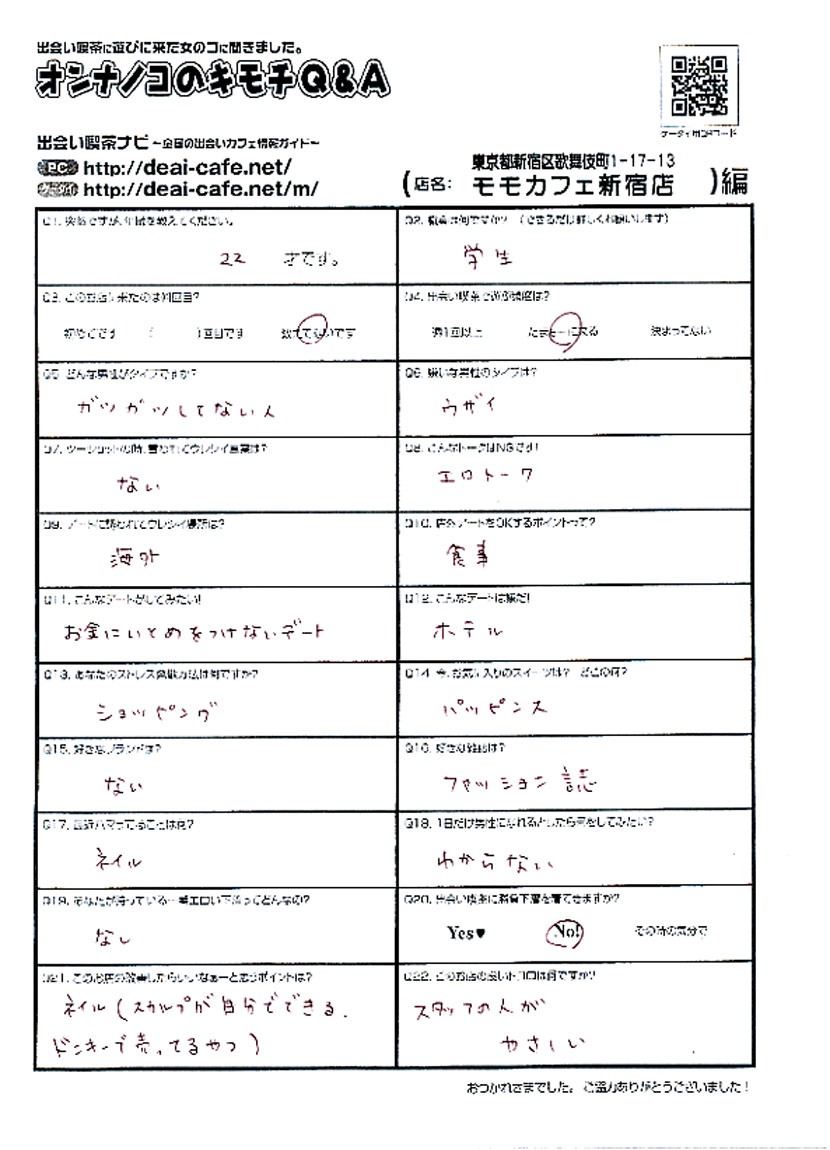 出会い喫茶に遊びに来た女のコに聞きました。
オンナノコのキモチQ&A
出会い喫茶ナビ～全国の出会いカフェ情報ガイド～
PC http://deai-cafe.net/
ケータイ http://deai-cafe.net/m/
ケータイ用QRコード
東京都新宿区歌舞伎町1-17-13
(店名: モモカフェ新宿店 )編
Q1. 突然ですが、年齢を教えてください。
22 才です。
Q2. 職業は何ですか？（できるだけ詳しくお願いします）
学生
Q3. このお店に来たのは何回目?
初めてです ( )回目です 数えてないです
Q4. 出会い喫茶で遊ぶ頻度は?
週1回以上 たまーに来る 決まってない
Q5. どんな男性がタイプですか?
ガツガツしてない人
Q6. 嫌いな男性のタイプは?
ウザイ
Q7. ツーショットの時、言われてウレシイ言葉は?
ない
Q8. こんなトークはNGです!
エロトーク
Q9. デートに誘われてウレシイ場所は?
海外
Q10. 店外デートをOKするポイントって?
食事
Q11. こんなデートがしてみたい!
お金にいとめをつけないデート
Q12. こんなデートは嫌だ!
ホテル
Q13. あなたのストレス発散方法は何ですか?
ショッピング
Q14. 今、お気に入りのスイーツは? どこの何?
パッピンス
Q15. 好きなブランドは?
ない
Q16. 好きな雑誌は?
ファッション誌
Q17. 最近ハマってることは何?
ネイル
Q18. 1日だけ男性になれるとしたら何をしてみたい?
わからない
Q19. あなたが持っている一番エロい下着ってどんなの?
なし
Q20. 出会い喫茶に勝負下着を着てきますか?
Yes♥ No! その時の気分で
Q21. このお店の改善したらいいなぁーと思うポイントは?
ネイル(スカルプが自分でできる.
ドンキーで売ってるやつ)
Q22. このお店の良いトコロは何ですか?
スタッフの人が
やさしい
おつかれさまでした。ご協力ありがとうございました!